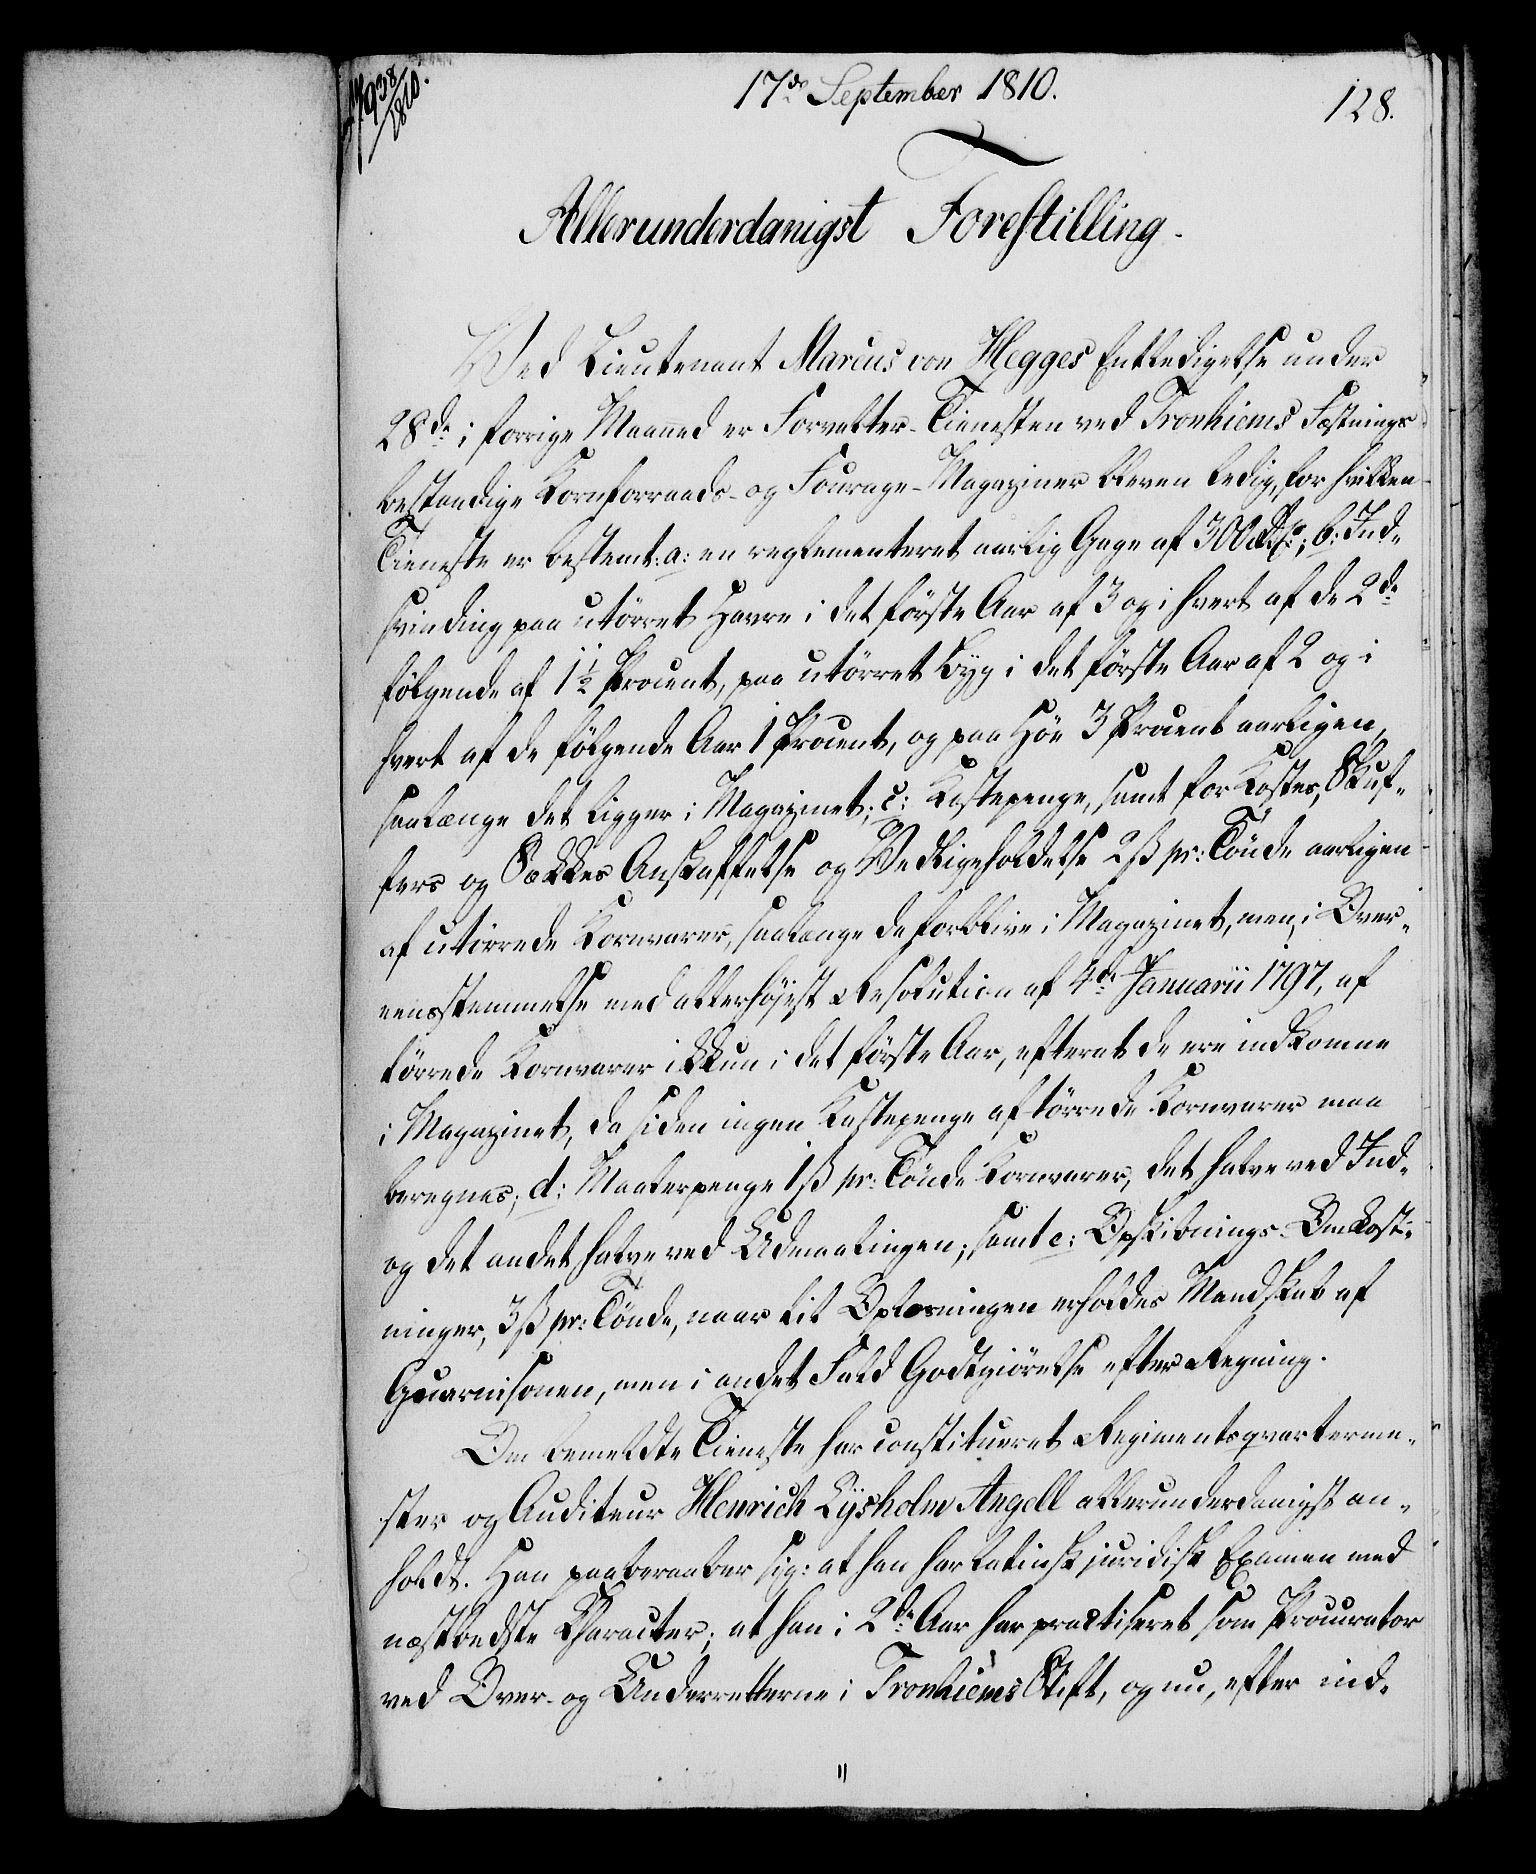 938/1810.
17de September 1810.
128.
Allerunderdanigst Forestilling.
Ved Lieutenant Marcus von Hegges Entledigelse under
28de i forrige Maaned er Forvalter-Tienesten ved Tronhiems Fæstnings
bestandige Kornforraads- og Fourage-Magaziner bleven ledig, for hvilken
Tieneste er bestemt: a: en reglementeret aarlig Gage af 300 Rd; b: Ind-
svinding paa utörret Havre i det förste Aar af 3 og i hvert af de 2de
fölgende af 1½ Procent, paa utörret Byg i det förste Aar af 2 og i
hvert af de fölgende Aar 1 Procent, og paa Höe 3 Procent aarligen,
saalænge det ligger i Magazinet; c: Kastepenge, samt for Kosters, Skuf-
fers og Sækkes Anskaffelse og Vedligeholdelse 2 ß pr: Tönde aarligen
af utörrede Kornvarer, saalænge de forblive i Magazinet, men, i Over-
eensstemmelse med allerhöjest Resolution af 4de Januarii 1797, af
törrede Kornvarer ikkun i det förste Aar, efterat de ere indkomne
i Magazinet, da siden ingen Kastepenge af törrede Kornvarer maa
beregnes; d: Maalerpenge 1 ß pr: Tönde Kornvarer, det halve ved Ind-
og det andet halve ved Udmaalingen; samt e: Opskibnings-Omkost-
ninger, 3 ß pr: Tönde, naar til Oplosningen erholdes Mandskab af
Guarnisonen, men i andet Fald Godtgiörelse efter Regning.
Om bemeldte Tieneste har constitueret Regimentsqvarterme-
ster og Auditeur Henrich Lysholm Angell allerunderdanigst an-
holdt. Han paaberaaber sig: at han har latinsk juridisk Examen med
næstbedste Character; at han i 2de Aar har practiseret som Procurator
ved Over- og Underretterne i Tronhiems Stift, og nu, efter ind-